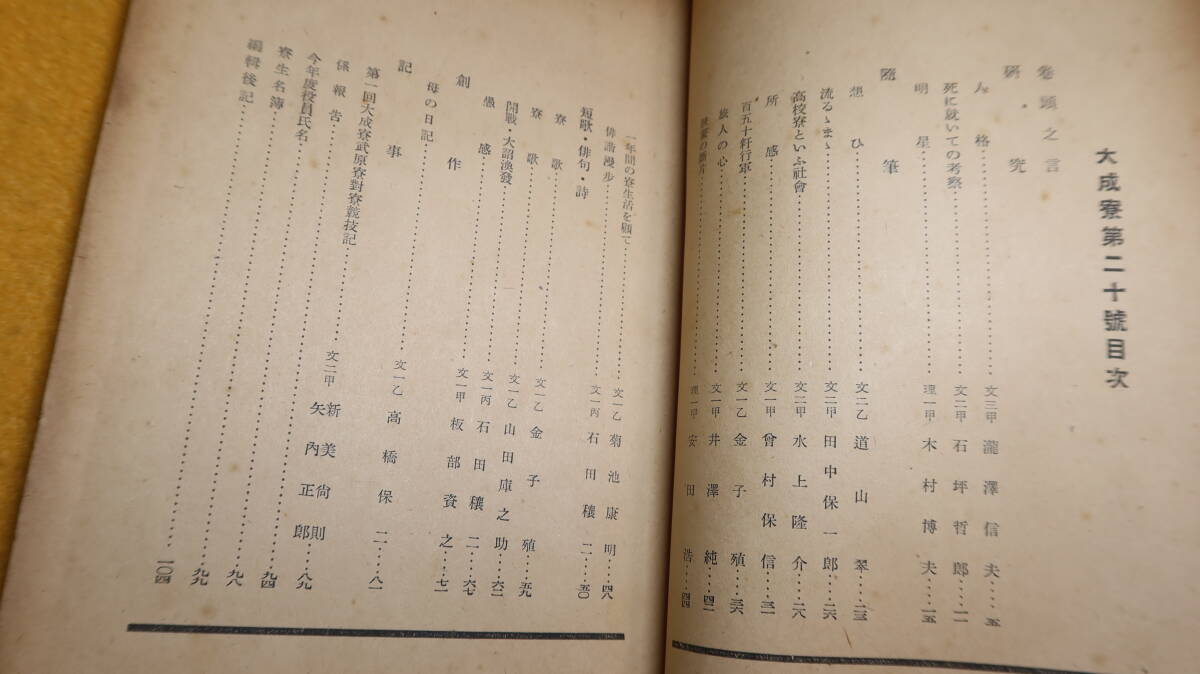 大成寮第二十號目次
卷頭之言
研究
人格……文三甲 瀧澤信夫……五
死に就いての考察……文二甲 石坪哲郎……一一
明星……理一甲 木村博夫……一五
隨筆
想ひ……文二乙 道山翠……二三
流るゝまゝ……文二甲 田中保一郎……二六
高校寮といふ社會……文二甲 水上隆介……二八
所感……文一甲 曾村保信……三一
百五十粁行軍……文一乙 金子殖……三六
旅人の心……文一甲 井澤純……四二
の斷片……理一甲 安田浩……四四
一年間の寮生活を顧て……文一乙 菊池康明……四八
俳諧漫步……文一丙 石田穰二……五〇
短歌・俳句・詩
寮歌
寮歌……文一乙 金子殖……五九
開戰・大詔渙發……文一乙 山田庫之助……六二
愚感……文一丙 石田穰二……六七
創作
母の日記……文一甲 板部資之……七一
記事
第一回大成寮武原寮對寮競技記……文一乙 高橋保二……八一
係報告……文二甲 新美尙則 矢內正郎……八九
今年度役員氏名……九四
寮生名簿……九八
編輯後記……九九
一〇四